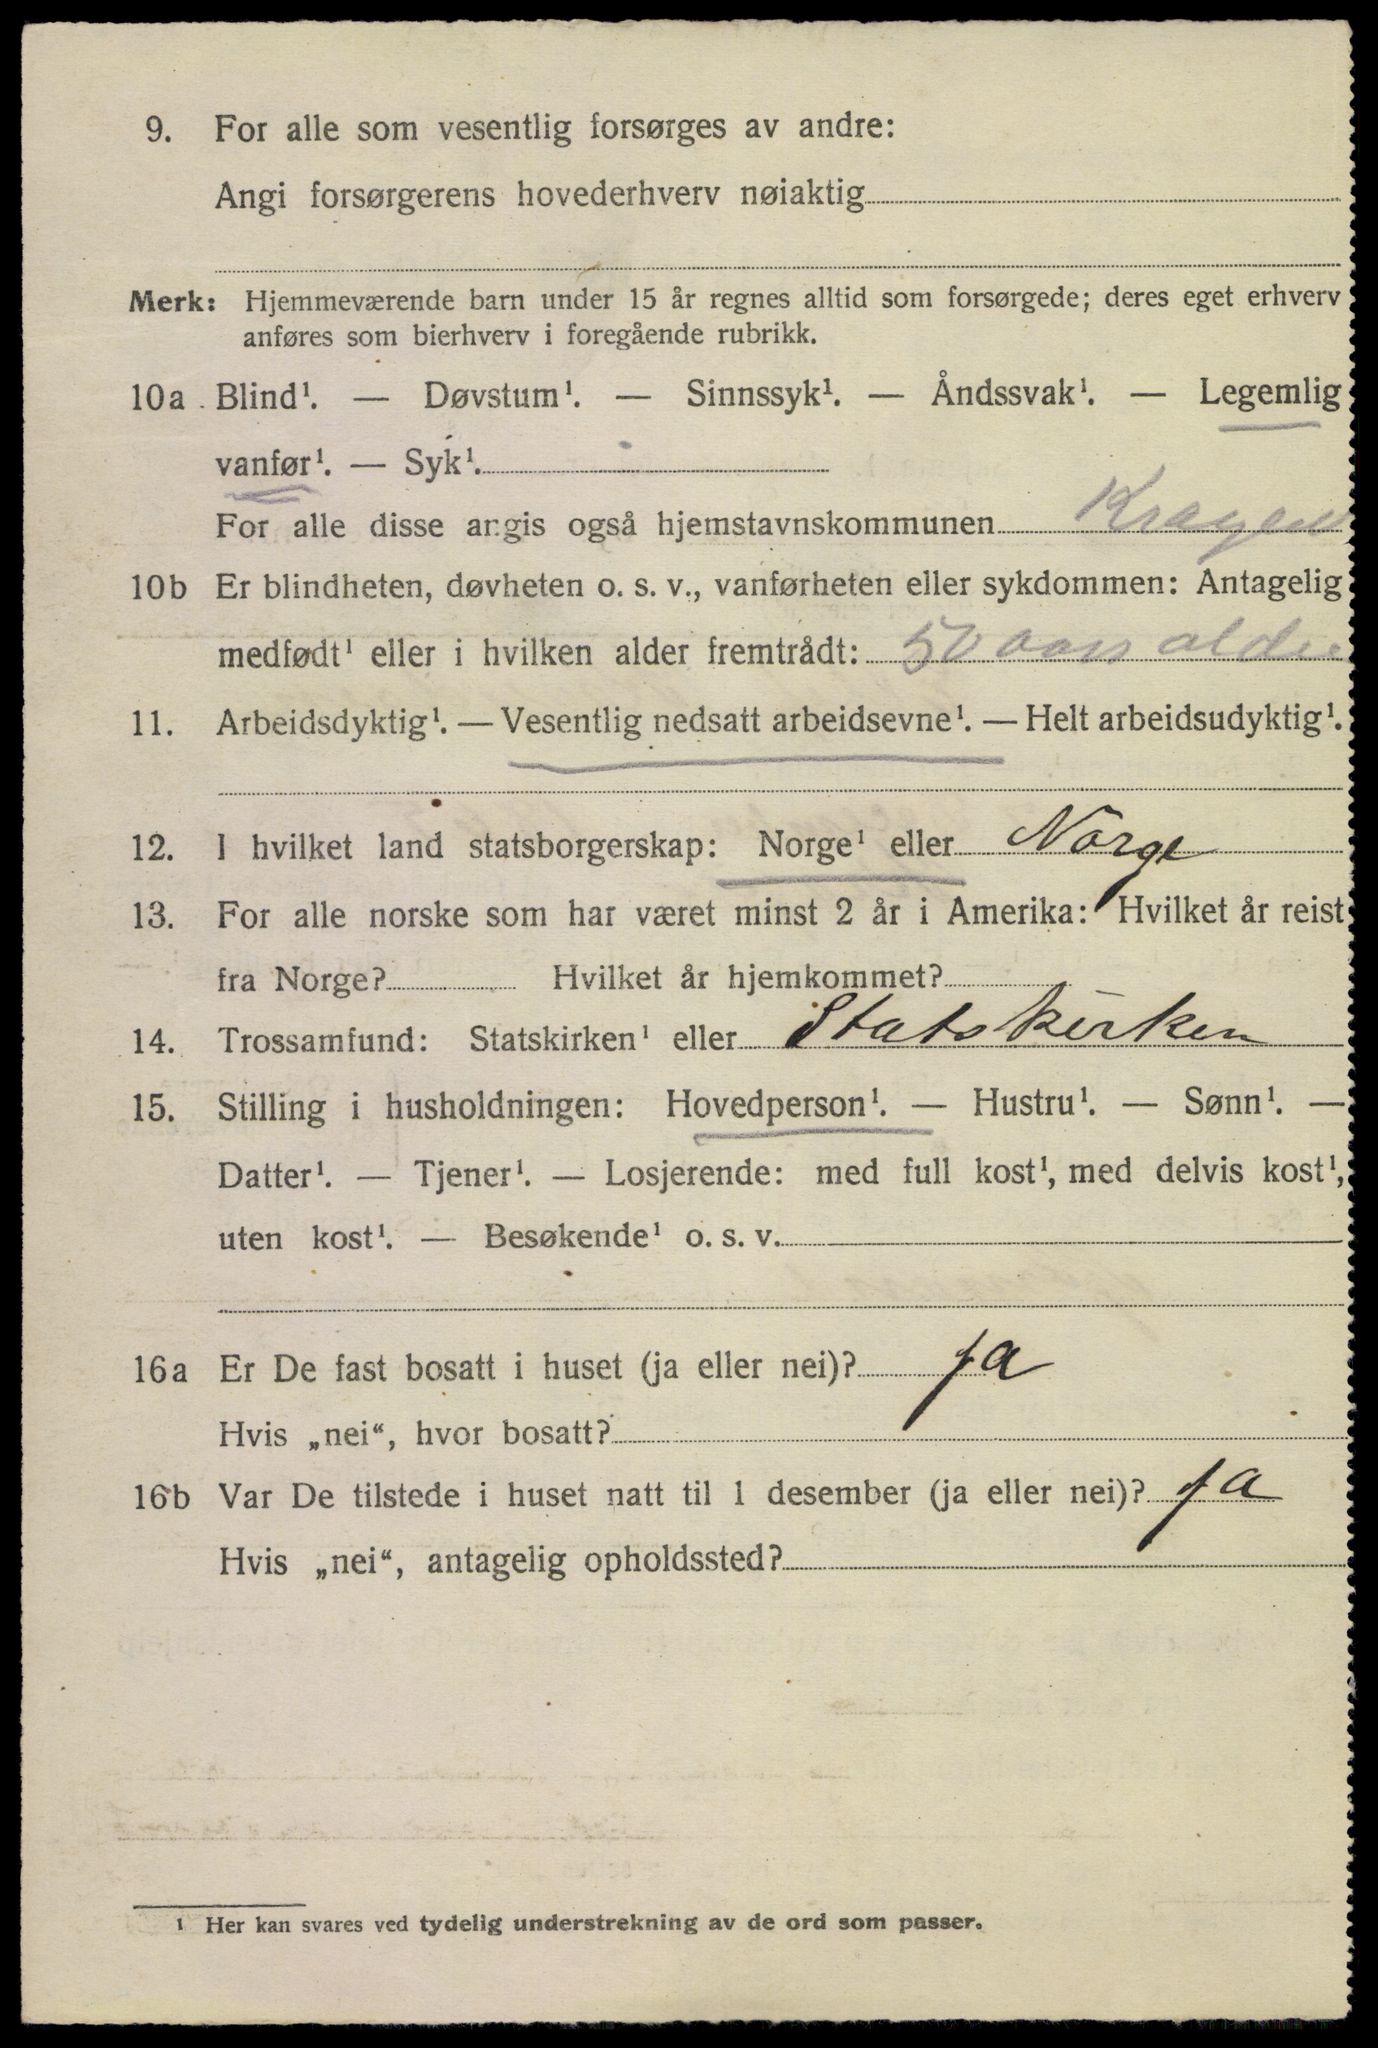 9. For alle som vesentlig forsørges av andre:
Angi forsørgerens hovederhverv nøiaktig
Merk: Hjemmeværende barn under 15 år regnes alltid som forsørgede; deres eget erhverv
anføres som bierhverv i foregående rubrikk.
10a Blind¹. — Døvstum¹. — Sinnssyk¹. — Åndssvak¹. — Legemlig
vanfør¹. — Syk¹.
For alle disse angis også hjemstavnskommunen Kragerø
10b Er blindheten, døvheten o. s. v., vanførheten eller sykdommen: Antagelig
medfødt¹ eller i hvilken alder fremtrådt: 50 aars alder
11. Arbeidsdyktig¹. — Vesentlig nedsatt arbeidsevne¹. — Helt arbeidsudyktig¹.
12. I hvilket land statsborgerskap: Norge¹ eller Norge
13. For alle norske som har været minst 2 år i Amerika: Hvilket år reist
fra Norge? Hvilket år hjemkommet?
14. Trossamfund: Statskirken¹ eller Statskirken
15. Stilling i husholdningen: Hovedperson¹. — Hustru¹. — Sønn¹. —
Datter¹. — Tjener¹. — Losjerende: med full kost¹, med delvis kost¹,
uten kost¹. — Besøkende¹ o. s. v.
16a Er De fast bosatt i huset (ja eller nei)? ja
Hvis „nei“, hvor bosatt?
16b Var De tilstede i huset natt til 1 desember (ja eller nei)? ja
Hvis „nei“, antagelig opholdssted?
1 Her kan svares ved tydelig understrekning av de ord som passer.